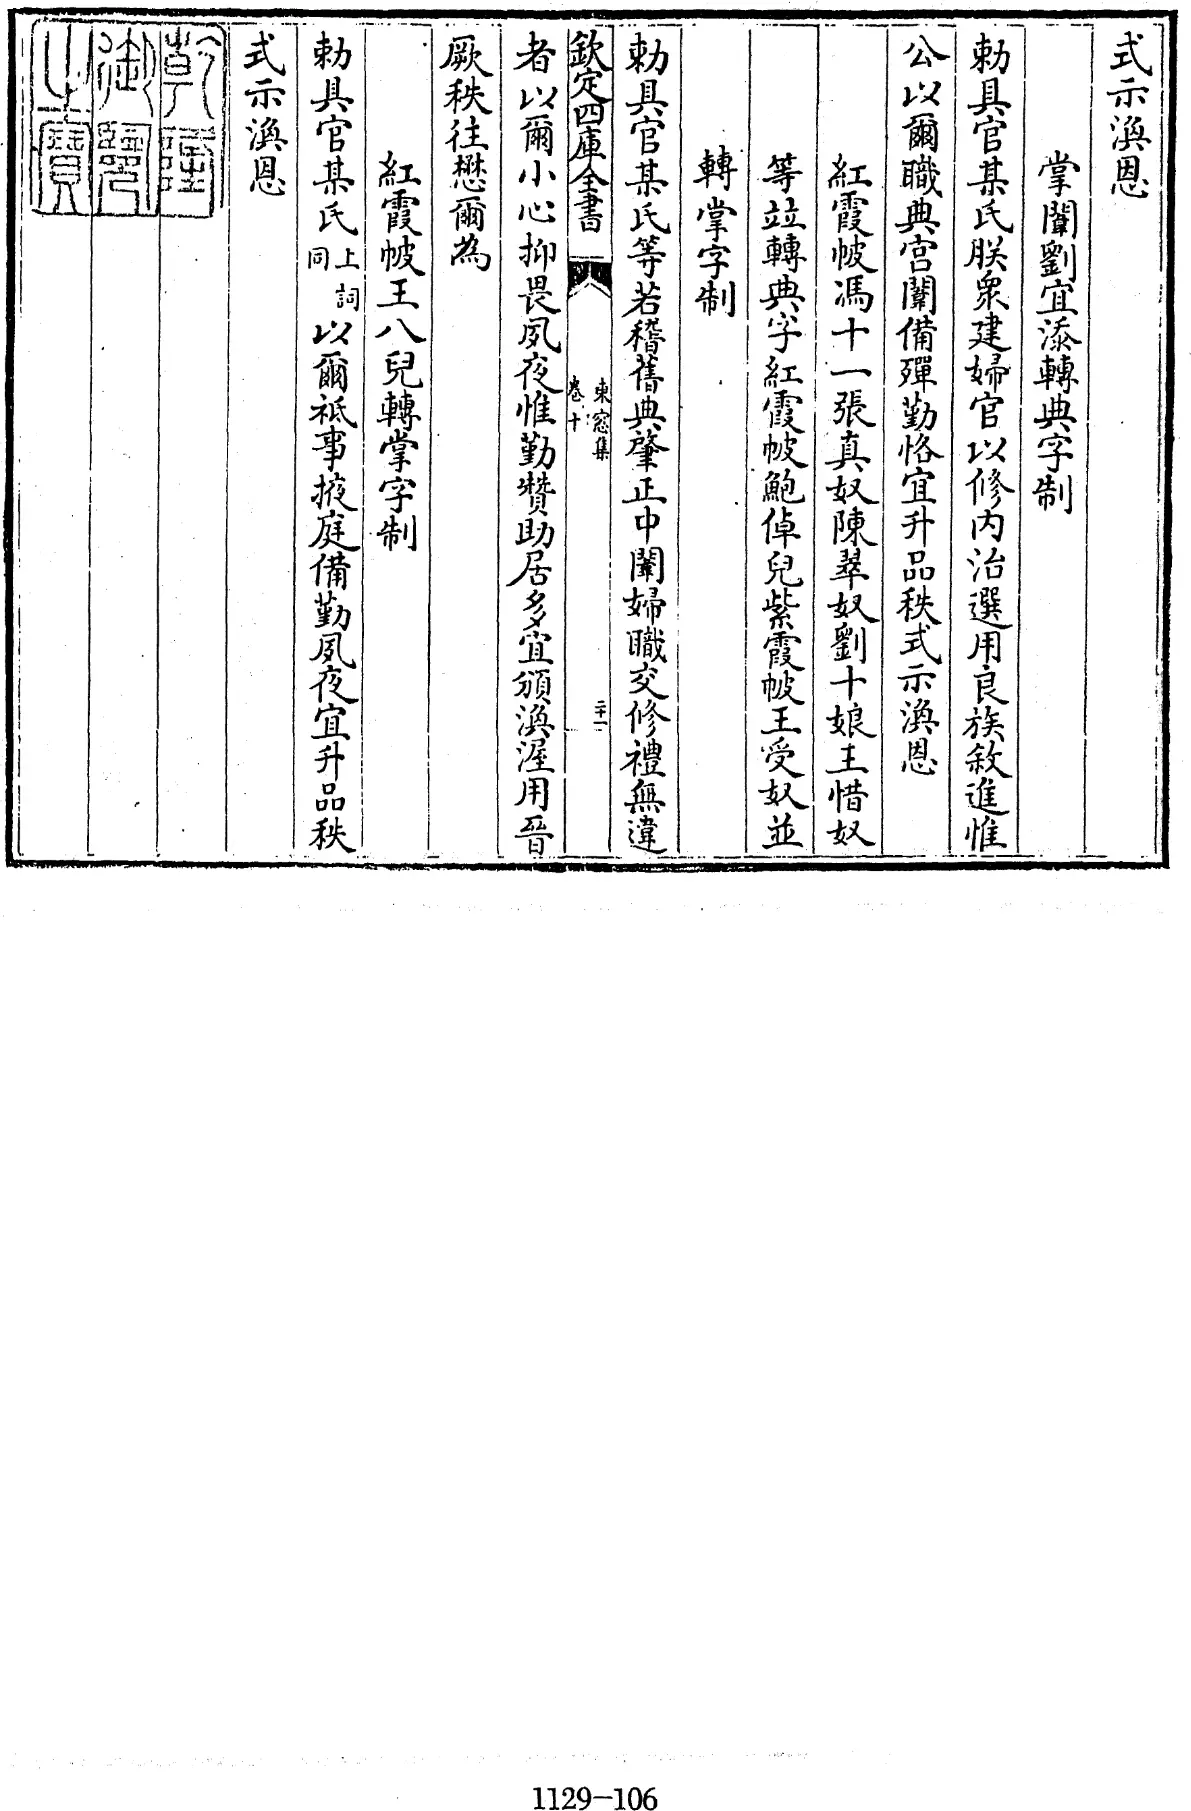 式示渙恩
掌闈劉宜添轉典字制
勅具官某氏朕衆建婦官以修内治選用良族敘進惟
公以爾職典宫闈備殫勤恪宜升品秩式示渙恩
紅霞帔馮十一張真奴陳翠奴劉十娘王惜奴
等竝轉典字紅霞帔鮑倬兒紫霞帔王受奴並
轉掌字制
勅具官某氏等若稽舊典肇正中闈婦職交修禮無違
欽定四庫全書
東窓集
卷十
二十一
者以爾小心抑畏夙夜惟勤贊助居多宜頒渙渥用晉
厥秩往懋爾為
紅霞帔王八兒轉掌字制
勅具官某氏上詞同以爾祇事掖庭備勤夙夜宜升品秩
式示渙恩
乾隆
御覽
之寶
1129-106